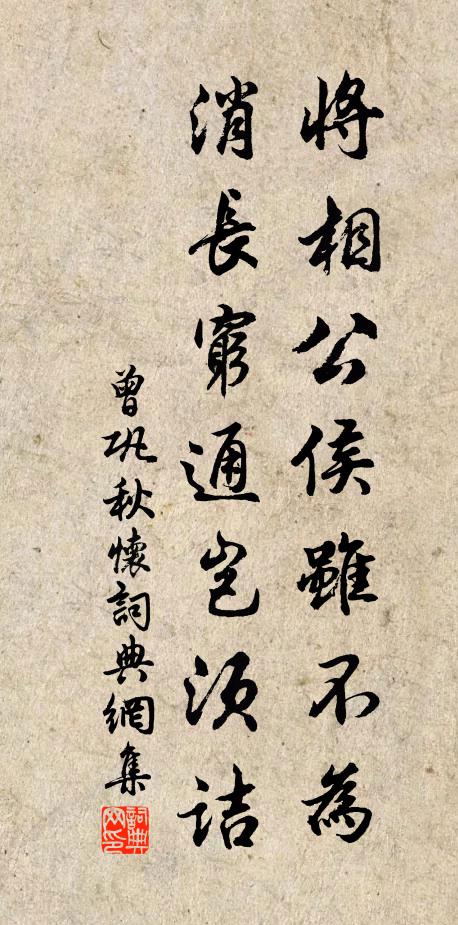 將相公侯雖不為
消長窮通豈須詰
曾鞏秋懷詞典網集
詞典網印